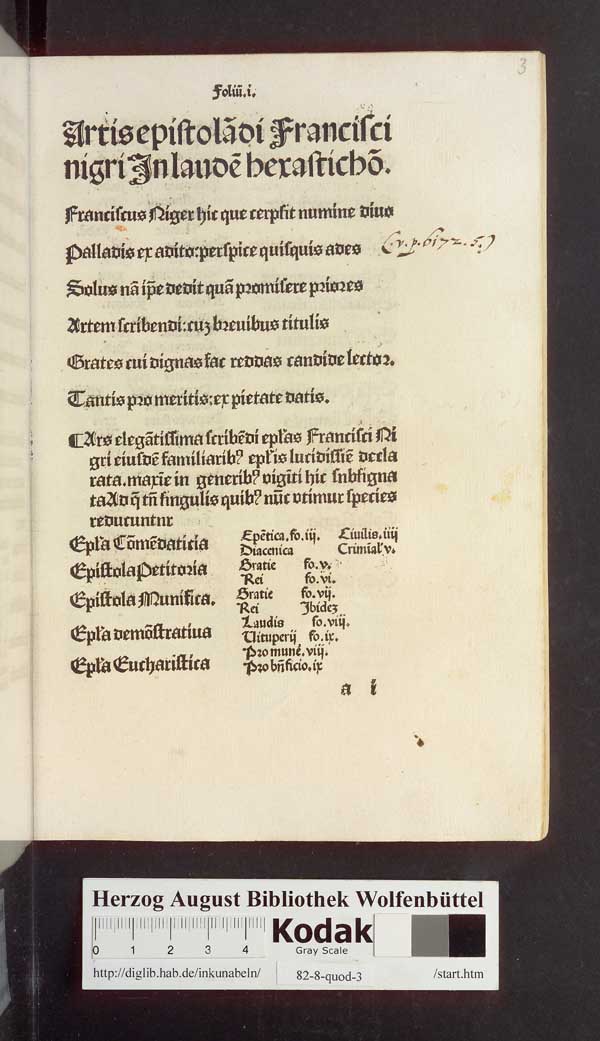 3
Foliū.i.
Artis epistolādi Francisci
nigri In laudē hexastichō.
Franciscus Niger hic que cerpsit numine diuo
Palladis ex adito:perspice quisquis ades
(v. p. 6172. 5.)
Solus nā ip̄e dedit quā promisere priores
Artem scribendi:cuꝫ breuibus titulis
Grates cui dignas fac reddas candide lector.
Tantis pro meritis:ex pietate datis.
¶Ars elegātissima scribēdi ep̄las Francisci Ni
gri eiusdē familiaribꝰ ep̄lis lucidissiē decla
rata.maxīe in generibꝰ vigīti hic subsigna
ta Ad q̄ tn̄ singulis quibꝰ nūc vtimur species
reducuntur
Ep̄la Cōmēdaticia
Epētica.fo.iij. Ciuilis.iiij
Diacenica Crimīal' v.
Epistola Petitoria
Gratie fo.v.
Rei fo.vi.
Epistola Munifica.
Gratie fo.vij.
Rei Ibideꝫ
Ep̄la demōstratiua
Laudis fo.viij.
Vituperij fo.ix.
Ep̄la Eucharistica
Pro munē.viij.
Pro bn̄ficio.ix
a i
Herzog August Bibliothek Wolfenbüttel
0 1 2 3 4
Kodak
Gray Scale
http://diglib.hab.de/inkunabeln/ 82-8-quod-3 /start.htm